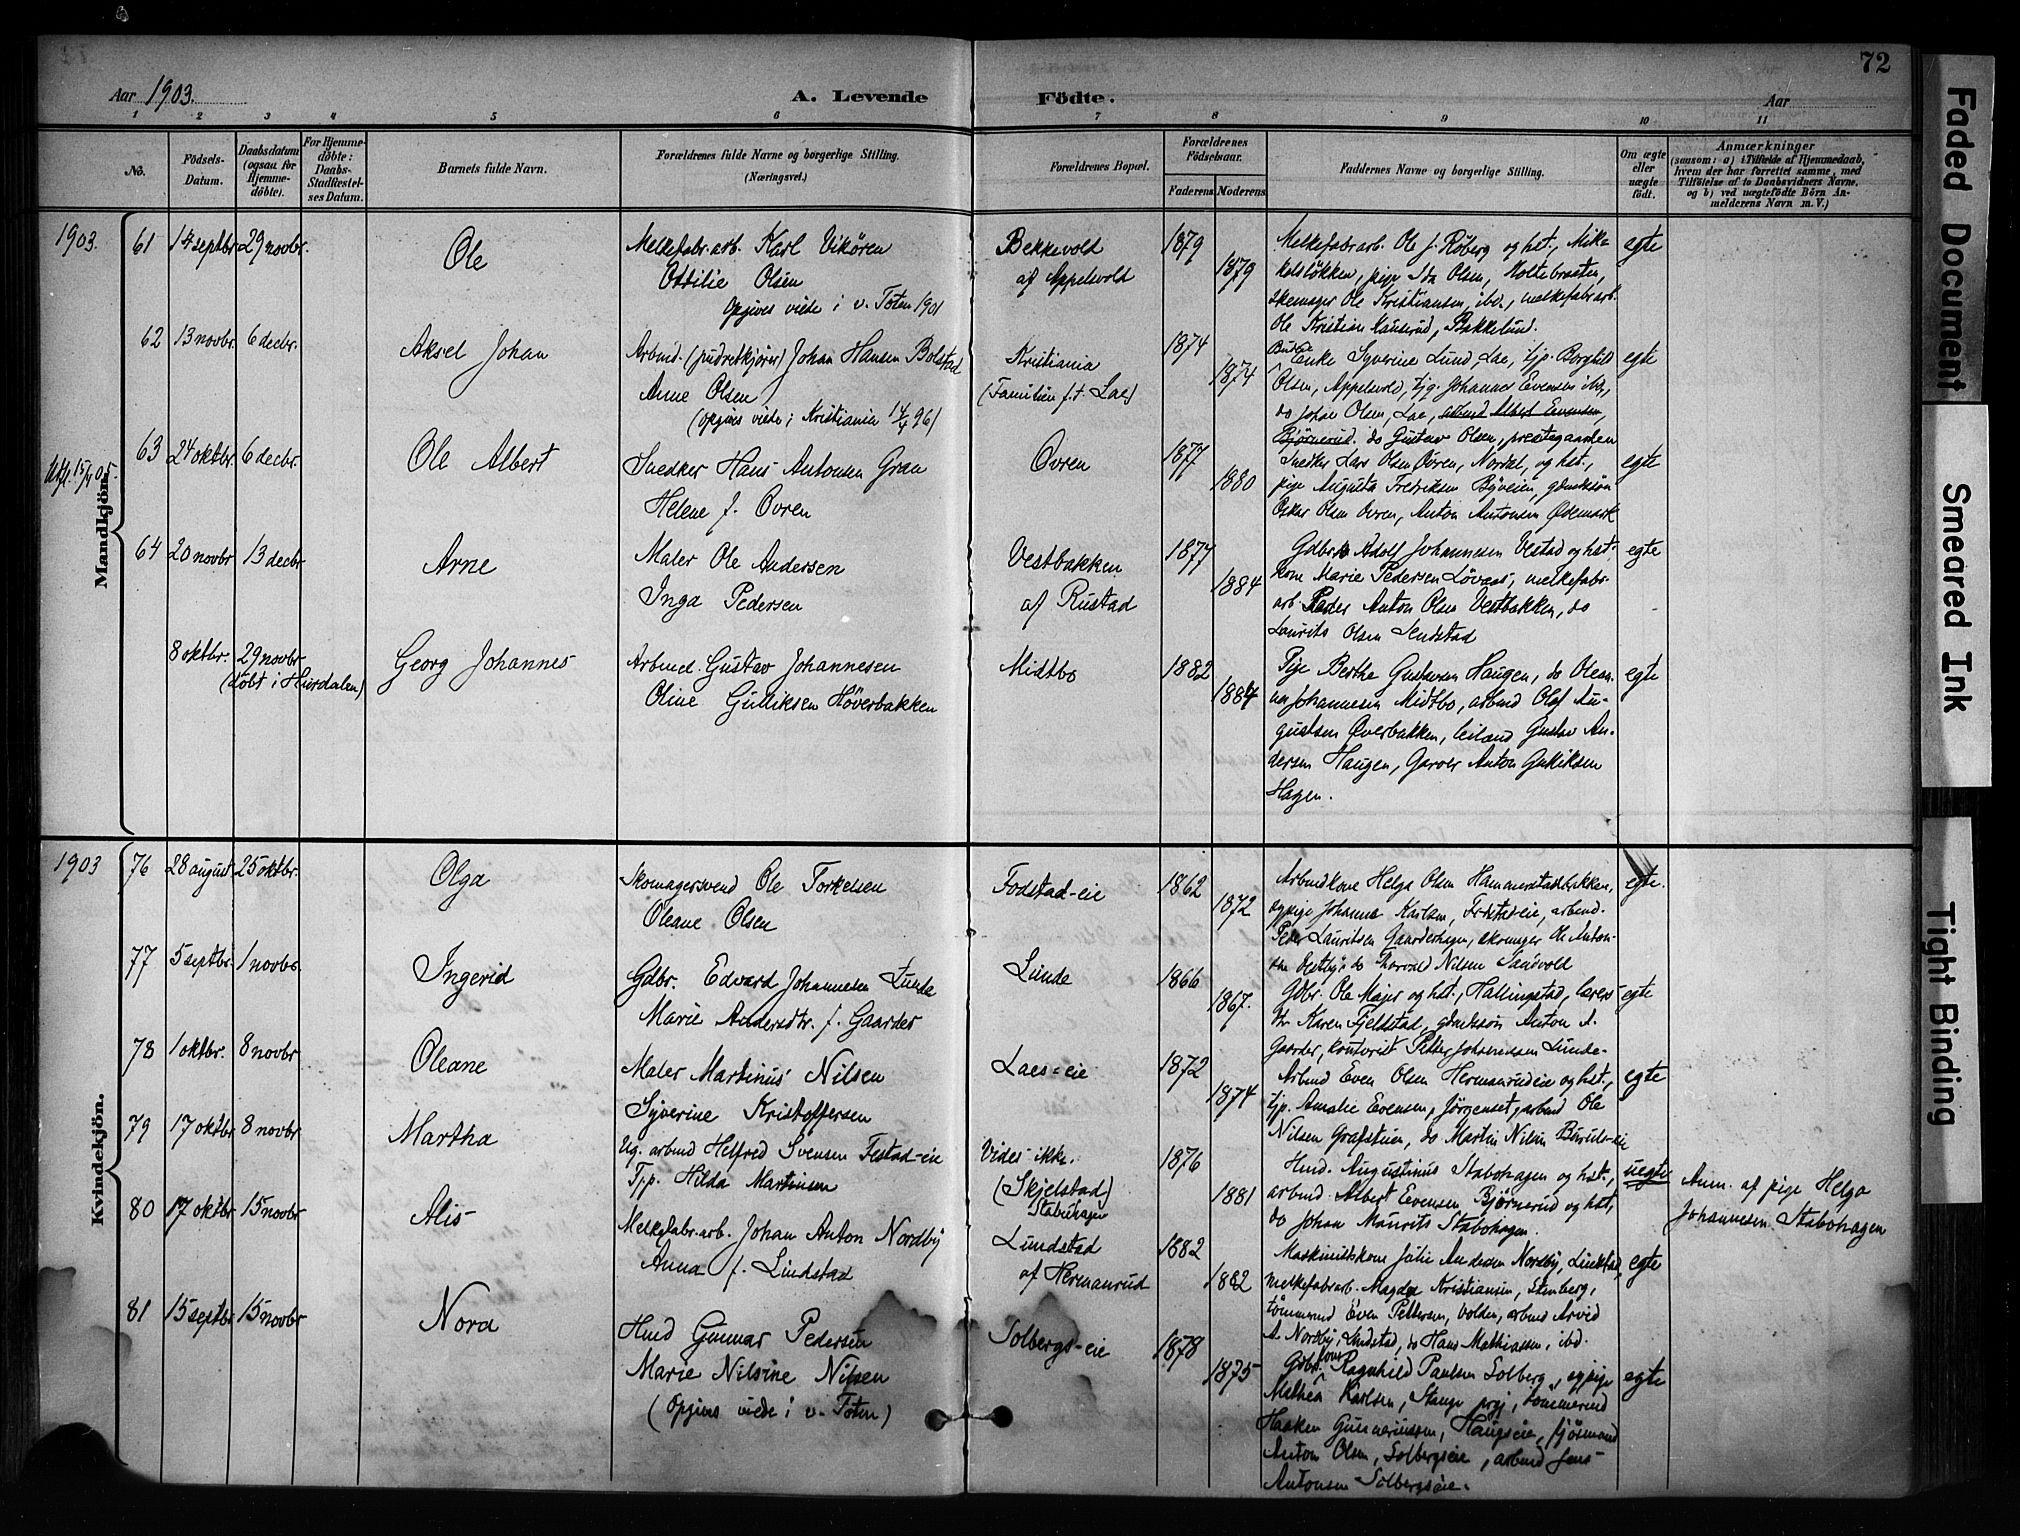 72
Aar 1903.
A. Levende
Födte.
Aar
1 2 3 4 5 6 7 8 9 10 11
No.
Födsels-Datum.
Daabsdatum (ogsaa for Hjemmedöbte).
For Hjemmedöbte: Daabs-Stadfæstelses Datum.
Barnets fulde Navn.
Forældrenes fulde Navne og borgerlige Stilling.
(Næringsvei.)
Forældrenes Bopæl.
Forældrenes Födselsaar.
Faderens Moderens
Faddernes Navne og borgerlige Stilling.
Om ægte eller uægte födt.
Anmærkninger
(saasom: a) i Tilfælde af Hjemmedaab,
hvem der har forrettet samme, med
Tilföielse af to Daabsvidners Navne,
og b) ved uægtefödte Börn Anmelderens Navn m. V.)
Mandkjön.
1903. 61 14 septbr 29 novbr. Ole
Melkefabr.arb. Karl Vikören
Ottilie Olsen
opgives viede i v. Toten 1901
Bekkevold
af Appelsvold
1879
1879
Melkefabrarb. Ole J. Röberg og hst., Mikkelslökken, pige Ida Olsen, Moltebraaten,
skomager Ole Kristiansen, ibd., melkefabrarb.
Ole Kristian Hauserud, Bakkelund.
egte
62 13 novbr. 6 decbr. Aksel Johan
Arbmd. (pudretkjører) Johan Hansen Bolstad
Anne Olsen
(opgives viede i Kristiania 14/4 96)
Kristiania
(Familien f.t. Lae)
1874
1874
Enke Syverine Lund, Lae, tjp. Borghild
Olsen, Appelsvold, tjg. Johannes Evensen ibd.,
do Johan Olsen, Lae, arbmd Albert Evensen,
Björnerud. do Gustav Olsen, prestegaarden
egte
Utfl. 15/4 05.
63 24 oktbr. 6 decbr. Ole Albert
Snedker Hans Antonsen Gran
Helene f. Övren
Övren
1877
1880
Snedker Lars Olsen Övren, Nordal, og hst.,
pige Augusta Fredriksen Byveien, gbrukssön
Oskar Olsen Övren, Anton Antonsen Ödemark
egte
64 20 novbr 13 decbr Arne
Maler Ole Andersen
Inga Pedersen
Vestbakken
af Rustad
1877
1884
Gdbr. Adolf Johannesen Vestad og hst.
kone Marie Pedersen Lövaas, melkefabr.
arb. Peder Anton Olsen Vestbakken, do
Laurits Olsen Sendstad
egte
8 oktbr. 29 novbr
(döbt i Hurdalen)
Georg Johannes
Arbmd. Gustav Johannesen
Oline Gulliksen Höverbakken
Midtbö
1882
1884
Pige Berthe Gustavsen Haugen, do Oleanna Johannesen Midtbö, arbmd Olaf Augustsen Överbakken, leilænd Gustav Andersen Haugen, Garver Anton Gulliksen
Hagen.
egte
Kvindekjön.
1903 76 28 august 25 oktbr. Olga
Skomagersvend Ole Torkelsen
Oleane Olsen
Fodstad-eie
1862
1872
Arbmdkone Helga Olsen Hammerstadbakken,
og pige Johanne Karlsen, Fodstadeie, arbmd.
Peder Lauritsen Gaarderhagen, skomager Ole Antonsen Östby, do Thorvald Nilsen Sandvold
egte.
77 5 septbr. 1 novbr. Ingerid
Gdbr. Edvard Johannesen Lunde
Marie Andersdtr. f. Gaarder
Lunde
1866
1867.
Gdbr. Ole Majer og hst., Hallingstad, lærer
Karen Fjeldstad, gbrukssön Anton A.
Gaarder, kontorist Petter Johannessen Lunde.
egte
78 1 oktbr. 8 novbr Oleane
Maler Martinus Nilsen
Syverine Kristoffersen
Laes-eie
1872
1874
Arbmd Even Olsen Hermanrudeie og hst.,
tjp. Amalie Evensen, Jörgenset, arbmd Ole
Nilsen Grafsteien, do Martin Nilsen Baruls-eie
egte
79 17 oktbr 8 novbr Martha
Ug. arbmd Helfred Svensen Festad-eie
Tjp. Hilda Martinsen
Vides ikke.
(Skjelstad)
Stabohagen
1876
1881
Hmd. Augustinus Stabohagen og hst.,
arbmd. Albert Evensen Björnerud og hst,
do Johan Maurits Stabohagen.
uegte
Anm. af pige Helga
Johannesen Stabohagen
80 17 oktbr 15 novbr Alis
Melkefabr.arb. Johan Anton Nordby
Anna f. Lindstad
Lundstad
af Hermanrud
1882
1882
Maskinistkone Julie Andersen Nordby, Lindstad,
melkefabrarb. Magda Kristiansen, Stenberg,
tömmermd Even Pettersen, Volden, arbmd Arvid
A. Nordby, Lundstad, do Hans Mathiassen, ibd.
egte
81 15 septbr 15 novbr Nora
Hmd Gunnar Pedersen
Marie Nilsine Nilsen
(opgives viede i v. Toten)
Solbergs-eie
1878
1875
Gdbr.kone Ragnhild Paulsen Solberg, og pige
Mathea Karlsen, Stange prgj, tömmermd
Haaken Gunnariussen, Haugseie, fjösmand
Anton Olsen, Solbergseie, arbmd Jens
Antonsen Solbergseie.
egte
Faded Document
Smeared Ink
Tight Binding